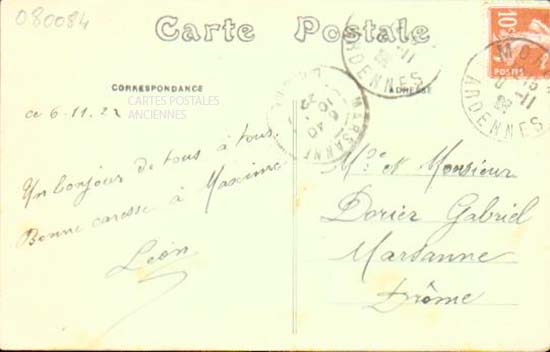 080084
Carte Postale
CORRESPONDANCE
ADRESSE
CARTES POSTALES
ANCIENNES
10c
POSTES
ARDENNES
ARDENNES
MARSANNE
ce 6.11.22
Un bonjour de tous à tous
Bonne caresse à Maxime
Léon
Mme et Monsieur
Dorier Gabriel
Marsanne
Drôme